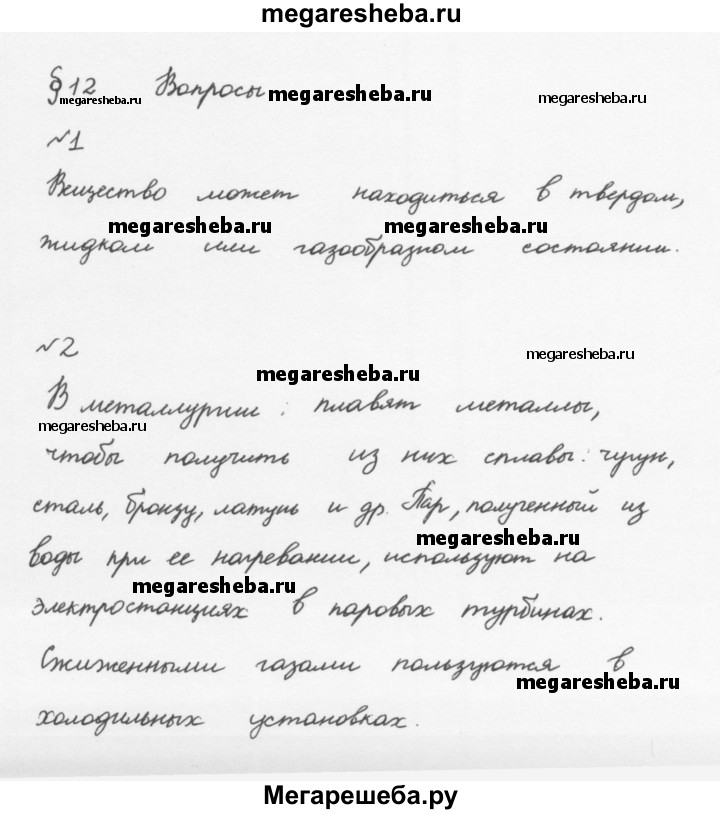 megaresheba.ru
§12 Вопросы megaresheba.ru megaresheba.ru
megaresheba.ru
№1
Вещество может находиться в твердом,
megaresheba.ru megaresheba.ru
жидком или газообразном состоянии.
№2 megaresheba.ru
megaresheba.ru
В металлургии: плавят металлы,
megaresheba.ru
чтобы получить из них сплавы: чугун,
сталь, бронзу, латунь и др. Пар, полученный из
megaresheba.ru
воды при ее нагревании, используют на
megaresheba.ru
электростанциях в паровых турбинах.
Сжиженными газами пользуются в
megaresheba.ru
холодильных установках.
Мегарешеба.ру